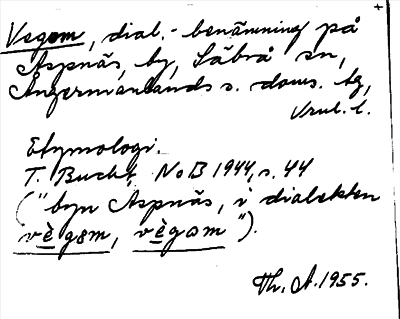 Vegom, dial.-benämning på
Aspnäs, by, Säbrå sn,
Ångermanlands s. doms. tg,
Vnul. l.
Etymologi.
T. Bucht, NoB 1944, s. 44
("byn Aspnäs, i dialekten
vègəm, vègɷm").
Th. A. 1955.